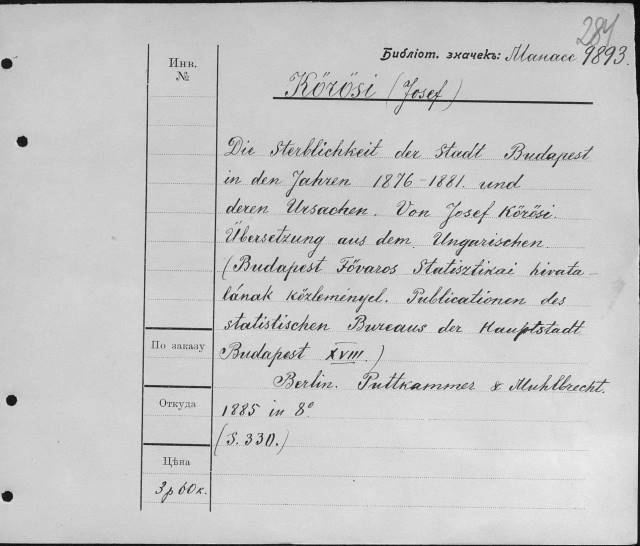 284
Библіот. значекъ: Манасс 9893.
Инв.
№
Körösi (Josef)
Die Sterblichkeit der Stadt Budapest
in den Jahren 1876-1881. und
deren Ursachen. Von Josef Körösi.
Übersetzung aus dem Ungarischen.
(Budapest Fövaros Statisztikai hivata-
lának közleményel. Publicationen des
statistischen Bureaus der Hauptstadt
По заказу
Budapest XVIII.)
Berlin. Puttkammer & Muhlbrecht.
Откуда
1885 in 8°
(S. 330.)
Цѣна
3 р 60 к.